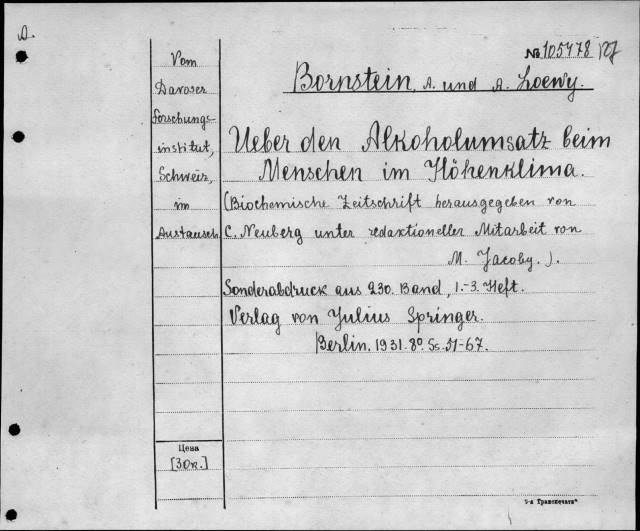 A.
№ 105478
Vom
Davoser
Forschungs-
institut,
Schweiz,
im
Austausch
Bornstein, A. und A. Loewy.
Ueber den Alkoholumsatz beim
Menschen im Höhenklima.
(Biochemische Zeitschrift herausgegeben von
C. Neuberg unter redaktioneller Mitarbeit von
M. Jacoby.).
Sonderabdruck aus 230. Band, 1.-3. Heft.
Verlag von Julius Springer.
Berlin. 1931. 8º. Ss. 51-67.
Цена
[30к.]
"Транспечати"